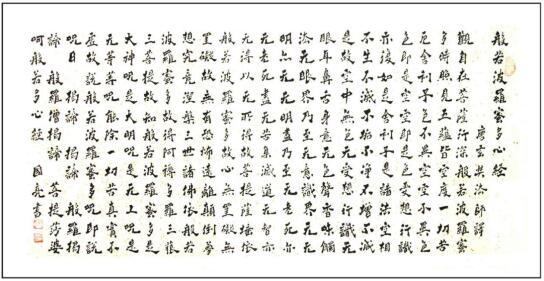 般若波羅蜜多心經
唐玄奘法師譯
觀自在菩薩行深般若波羅蜜
多時照見五蘊皆空度一切苦
厄舍利子色不異空空不異色
色即是空空即是色受想行識
亦復如是舍利子是諸法空相
不生不滅不垢不淨不增不減
是故空中无色无受想行識无
眼耳鼻舌身意无色聲香味觸
法无眼界乃至无意識界无无
明亦无无明盡乃至无老死亦
无老死盡无苦集滅道无智亦
无得以无所得故菩提薩埵依
般若波羅蜜多故心無罣礙無
罣礙故無有恐怖遠離顛倒夢
想究竟涅槃三世諸佛依般若
波羅蜜多故得阿耨多羅三藐
三菩提故知般若波羅蜜多是
大神呪是大明呪是无上呪是
无等等呪能除一切苦真實不
虛故說般若波羅蜜多呪即說
呪曰 揭諦揭諦 般羅揭
諦 般羅僧揭諦 菩提莎婆
呵般若多心經 國亮書